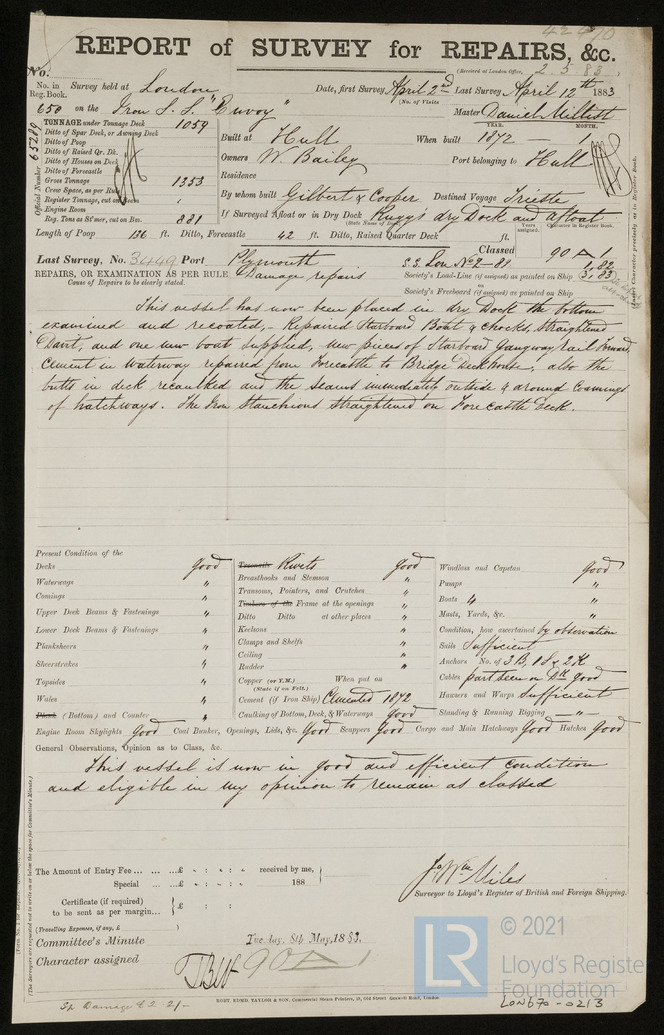 42470
REPORT of SURVEY for REPAIRS, &c.
(Received at London Office, 2.5.83.
No.
No. in Reg. Book. Survey held at London Date, first Survey April 2nd Last Survey April 12th 1883
(No. of Visits
650 on the Iron S.S. "Envoy" Master Daniel
TONNAGE under Tonnage Deck 1059
Ditto of Spar Deck, or Awning Deck
Ditto of Poop
Ditto of Raised Qr. Dk.
Ditto of Houses on Deck
Ditto of Forecastle
Gross Tonnage 1353
Crew Space, as per Rule
Register Tonnage, cut on Beam
Engine Room
Reg. Tons as St'mer, cut on Bm. 881
Official Number 65289
YEAR. MONTH.
Built at Hull When built 1872 — 1
Owners W. Bailey Port belonging to Hull
Residence
By whom built Gilbert & Cooper Destined Voyage Trieste
If Surveyed Afloat or in Dry Dock Rugg's dry Dock and afloat
(State Name of Dock.)
Years assigned. Character in Register Book.
Length of Poop 136 ft. Ditto, Forecastle 42 ft. Ditto, Raised Quarter Deck ft.
Classed 90 A 1
Last Survey, No. 3449 Port Plymouth S.S. Lon No 2-81 1,82
REPAIRS, OR EXAMINATION AS PER RULE Damage repairs Society's Load-Line (if assigned) as painted on Ship 3,83
Cause of Repairs to be clearly stated.
Society's Freeboard (if assigned) as painted on Ship
This vessel has now been placed in dry Dock the bottom
examined and recoated,- Repaired Starboard Boat & chocks, straightened
Davit, and one new boat supplied, new pieces of Starboard Gangway rail forward,
Cement in waterway repaired from Forecastle to Bridge Deckhouse, also the
butts in deck recaulked and the seams immediately outside & around Coamings
of hatchways. The Iron Stanchions straightened on Forecastle Deck.
Present Condition of the
Decks good
Waterways "
Comings "
Upper Deck Beams & Fastenings "
Lower Deck Beams & Fastenings "
Planksheers "
Sheerstrakes "
Topsides "
Wales "
Plank (Bottom) and Counter "
Treenails Rivets good
Breasthooks and Stemson "
Transoms, Pointers, and Crutches "
Timbers of the Frame at the openings "
Ditto Ditto at other places "
Keelsons "
Clamps and Shelfs "
Ceiling "
Rudder "
Copper (or Y.M.) When put on
(State if on Felt.)
Cement (if Iron Ship) Cemented 1872
Caulking of Bottom, Deck, & Waterways good
Windlass and Capstan good
Pumps "
Boats 4 "
Masts, Yards, &c. "
Condition, how ascertained by observation
Sails Sufficient
Anchors No. of 3 B, 1 S & 2 K
Cables part seen on Dk good
Hawsers and Warps Sufficient
Standing & Running Rigging "
Engine Room Skylights good Coal Bunker, Openings, Lids, &c. good Scuppers good Cargo and Main Hatchways good Hatches good
General Observations, Opinion as to Class, &c.
This vessel is now in good and efficient condition
and eligible in my opinion to remain as classed
The Amount of Entry Fee ... ... ...£ : : received by me,
Special ... ...£ : : 188
Certificate (if required) to be sent as per margin... £ :
(Travelling Expenses, if any, £ )
Jas Wm Miles
Surveyor to Lloyd's Register of British and Foreign Shipping.
Committee's Minute Tuesday, 8th May, 1883.
Character assigned 90 A 1
ROBT. EDMD. TAYLOR & SON, Commercial Steam Printers, 19, Old Street, Goswell Road, London.
LR © 2021
Lloyd's Register
Foundation
LON670-0213